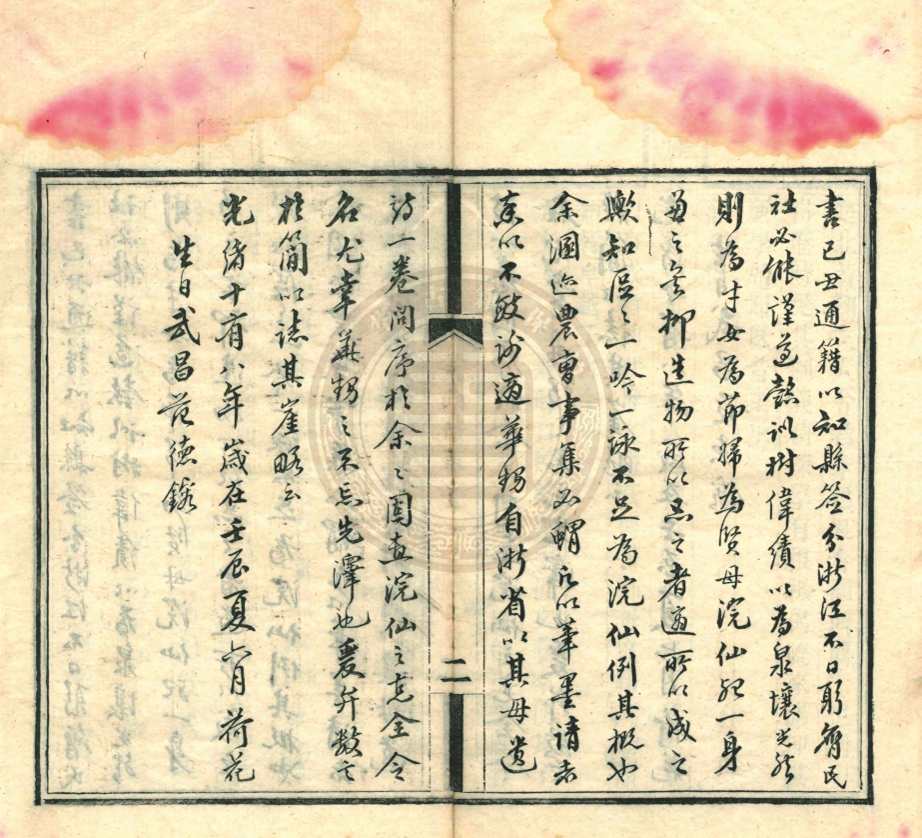 書己丑通籍以知縣簽分浙江不日躬膺民
社必能謹遵懿訓樹偉績以為泉壤光然
則為才女為節婦為賢母浣仙能一身
兼之矣抑造物所以忌之者適所以成之
歟知區々一吟一詠不足為浣仙例其概也
余溷迹農曹事集如蝟凡以筆墨請者
率以不敏謝適華甥自浙省以其母遺
詩一卷問序於余々固直浣仙之克全令
名尤幸華甥之不忘先澤也爰弁數言
於簡以誌其崖略云
光緒十有八年歲在壬辰夏六月荷花
生日武昌范德鎔
二